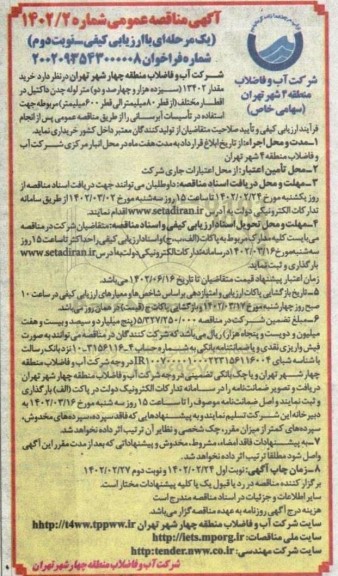 آگهی مناقصه عمومی شماره ۱۴۰۲/۲
(یک مرحله‌ای با ارزیابی کیفی-نوبت دوم)
شماره فراخوان ۲۰۰۲۰۹۳۵۴۳۰۰۰۰۰۸
شرکت آب و فاضلاب
منطقه ۴ شهر تهران
(سهامی خاص)
شرکت آب و فاضلاب منطقه چهار شهر تهران در نظر دارد خرید
مقدار ۱۳۴۰۲ (سیزده هزار و چهارصد و دو) متر لوله چدن داکتیل در
اقطار مختلف (از قطر ۸۰ میلیمتر الی قطر ۶۰۰ میلیمتر) مربوطه جهت
استفاده در تأسیسات آبرسانی را از طریق مناقصه عمومی پس از انجام
فرآیند ارزیابی کیفی و تأیید صلاحیت متقاضیان از تولیدکنندگان معتبر داخل کشور خریداری نماید.
۱-مدت و محل اجراء: از تاریخ ابلاغ قرارداد به مدت هفت ماه در محل انبار مرکزی شرکت آب
و فاضلاب منطقه ۴ شهر تهران
۲-محل تأمین اعتبار: از محل اعتبارات جاری شرکت
۳-مهلت و محل دریافت اسناد مناقصه: داوطلبان می‌توانند جهت دریافت اسناد مناقصه از
روز یکشنبه مورخ ۱۴۰۲/۰۲/۲۴ تا ساعت ۱۵ روز سه‌شنبه مورخ ۱۴۰۲/۰۳/۰۲ از طریق سامانه
تدارکات الکترونیکی دولت به آدرس www.setadiran.ir اقدام نمایند.
۴-مهلت و محل تحویل اسناد ارزیابی کیفی و اسناد مناقصه: متقاضیان شرکت در مناقصه
می‌بایست کلیه مدارک مربوط به پاکات (الف، ب، ج) و اسناد ارزیابی کیفی را حداکثر تا ساعت ۱۵ روز
سه شنبه مورخ ۱۴۰۲/۰۳/۱۶ در سامانه تدارکات الکترونیکی دولت به آدرس www.setadiran.ir
بارگذاری و ثبت نمایند.
زمان اعتبار پیشنهاد قیمت متقاضیان تا تاریخ ۱۴۰۲/۰۶/۱۶ می‌باشد.
۵-تاریخ بازگشایی پاکات ارزیابی و امتیازدهی براساس شاخص‌ها و معیارهای ارزیابی کیفی در ساعت ۱۰
صبح روز چهارشنبه مورخ ۱۴۰۲/۰۳/۱۷ و بازگشایی پاکات ج (قیمت) در همان روز می‌باشد.
۶-مبلغ تضمین شرکت در مناقصه ۵/۲۲۷/۲۵۰/۰۰۰ (پنج میلیارد و دویست و بیست و هفت
میلیون و دویست و پنجاه هزار) ریال می‌باشد که شرکت کنندگان در مناقصه می‌توانند به صورت
فیش واریزی نقدی و یا ضمانتنامه بانکی به شماره حساب
چهار شهر تهران و یا چک بانکی تضمینی در وجه شرکت آب و فاضلاب منطقه چهار شهر تهران
دریافت و تصویر ضمانت‌نامه را در سامانه تدارکات الکترونیک دولت در پاکت (الف) بارگذاری
و ثبت نمایند و اصل ضمانت‌نامه موصوف را تا ساعت ۱۵ روز سه شنبه مورخ ۱۴۰۲/۰۳/۱۶ به
دبیرخانه این شرکت تسلیم نمایند و به پیشنهادهایی که فاقد سپرده، سپرده‌های مخدوش،
سپرده‌های کمتر از میزان مقرر، چک شخصی و نظایر آن ترتیب اثر داده نخواهد شد.
۷-به پیشنهادات فاقد امضاء، مشروط، مخدوش و پیشنهاداتی که بعد از مدت مقرر این آگهی
واصل شود مطلقاً ترتیب اثر داده نخواهد شد.
۸-زمان چاپ آگهی: نوبت اول ۱۴۰۲/۰۲/۲۴ و نوبت دوم ۱۴۰۲/۰۲/۲۷
برگزار کننده مناقصه در رد یا قبول یک یا کلیه پیشنهادات مختار است.
سایر اطلاعات و جزئیات در اسناد مناقصه مندرج است
هزینه درج آگهی روزنامه به عهده مناقصه گزار می‌باشد.
سایت شرکت آب و فاضلاب منطقه چهار شهر تهران hhttp://t4ww.tppww.ir
سایت ملی مناقصات: http://iets.mporg.ir
سایت شرکت مهندسی: http:tender.nww.co.ir
شرکت آب و فاضلاب منطقه چهار شهر تهران